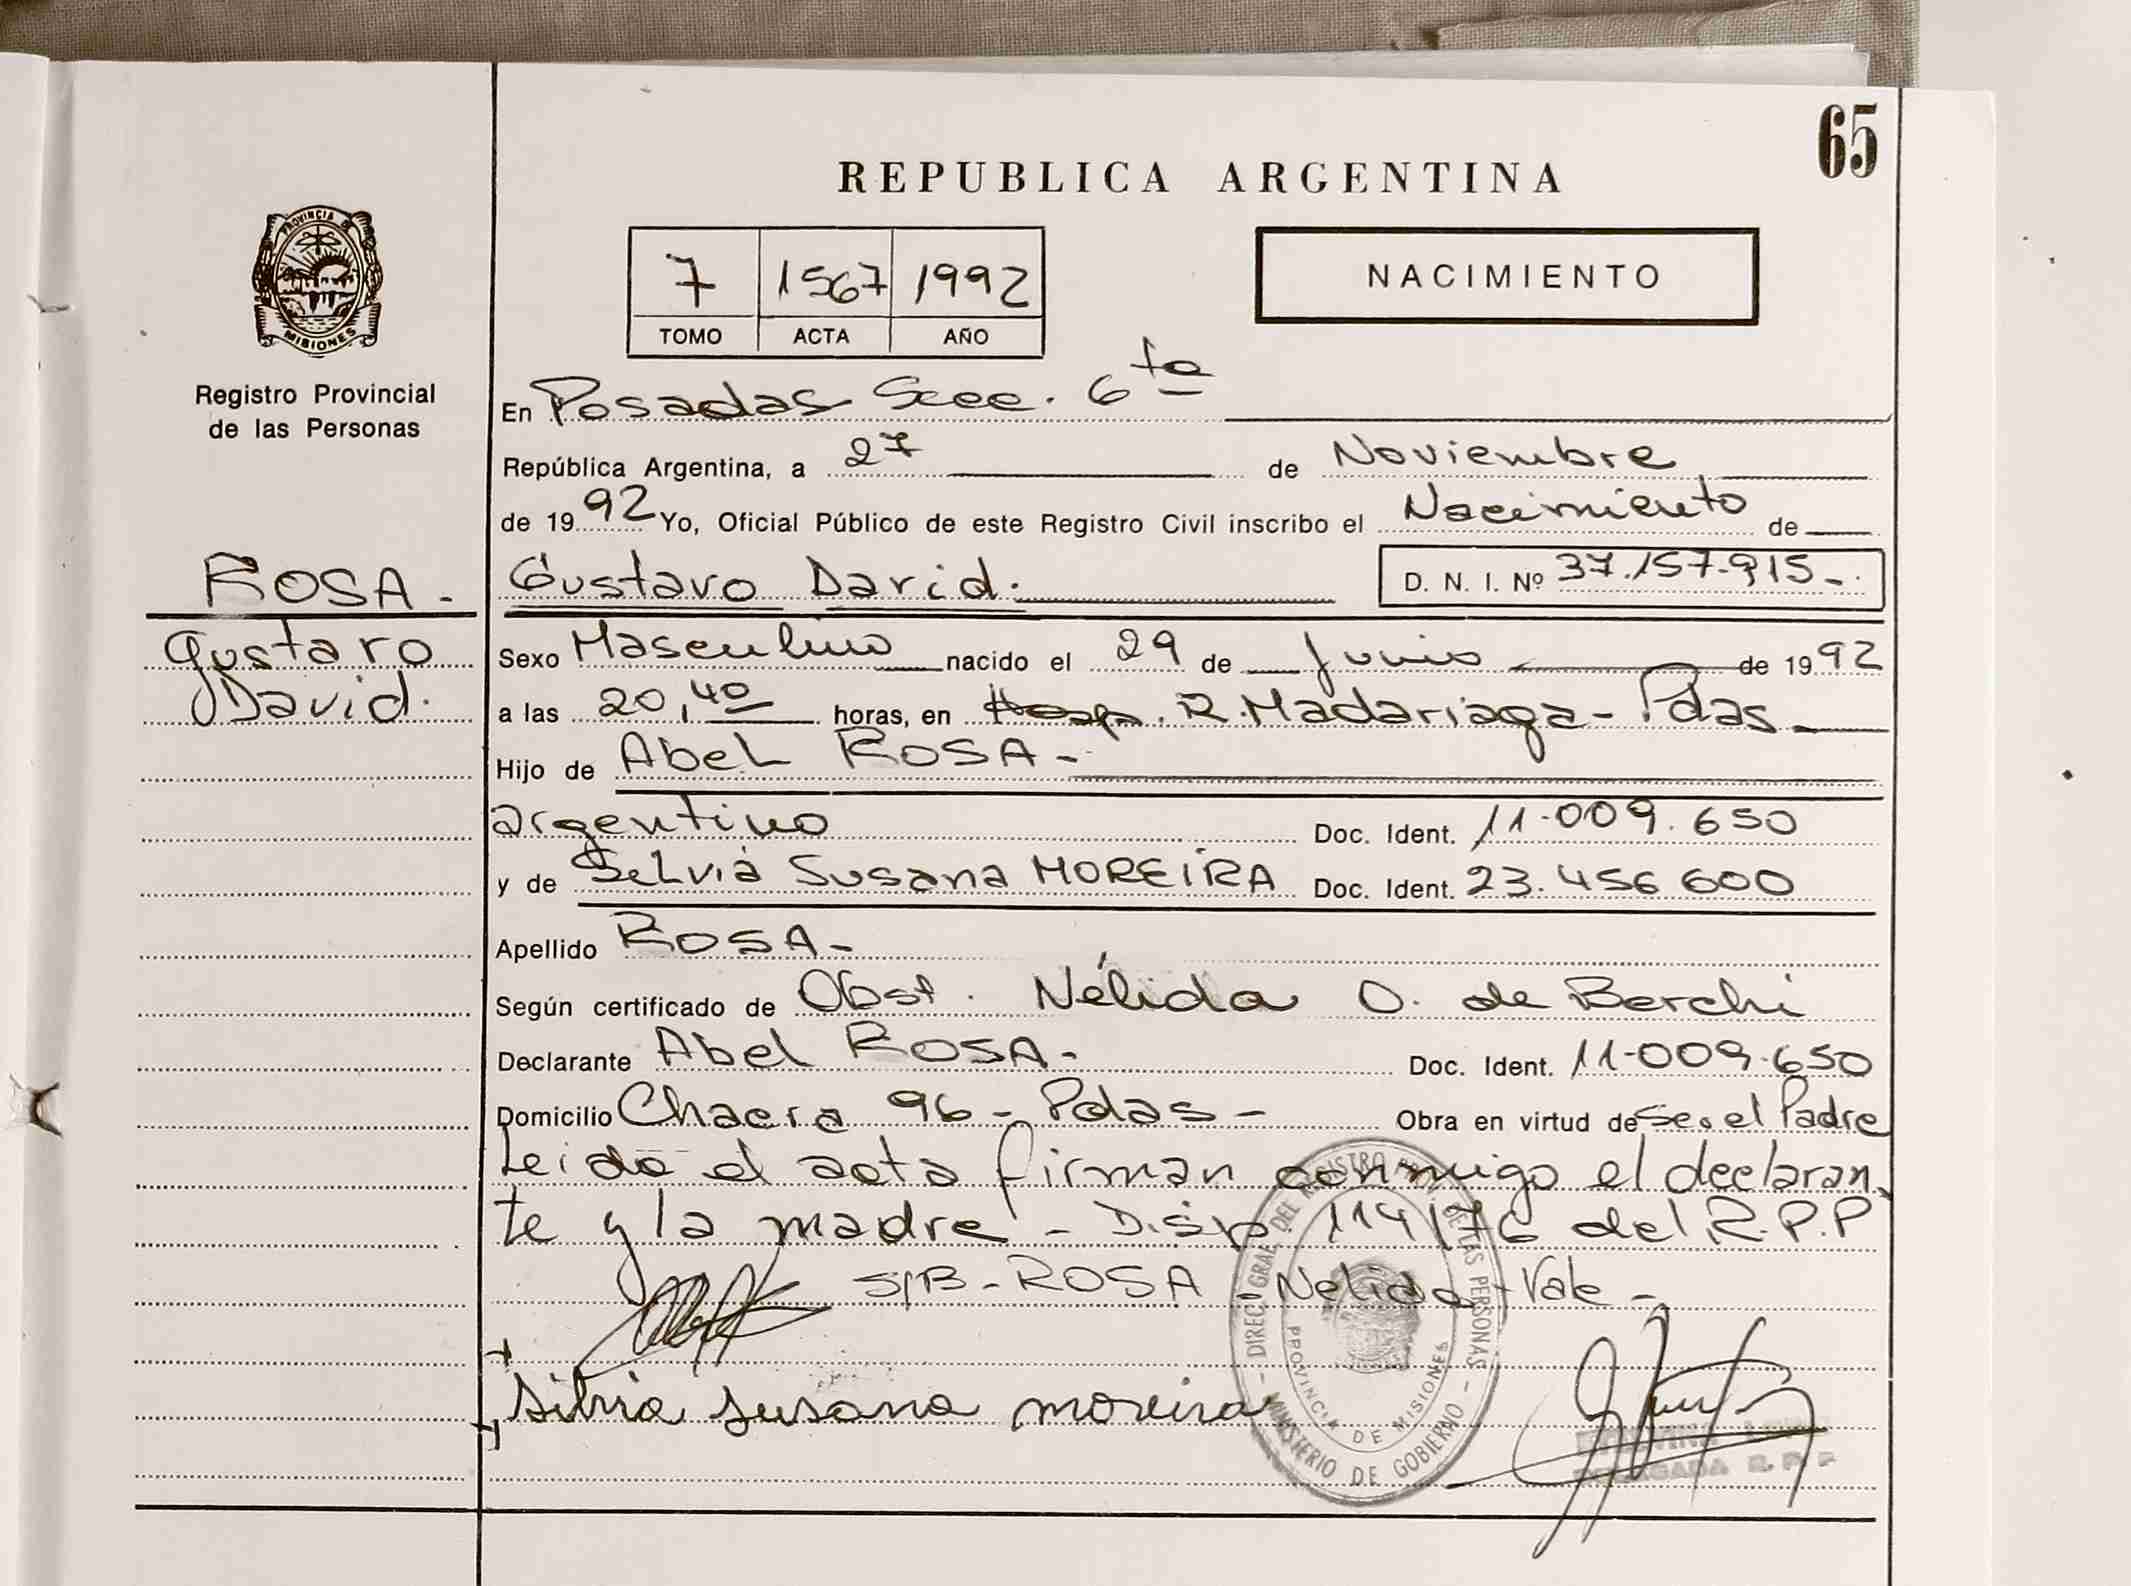 65
REPUBLICA ARGENTINA
PROVINCIA DE
MISIONES
Registro Provincial
de las Personas
7 1567 1992
TOMO ACTA AÑO
NACIMIENTO
En Posadas Secc. 6ta
República Argentina, a 27 de Noviembre
de 1992 Yo, Oficial Público de este Registro Civil inscribo el Nacimiento de
ROSA.
Gustavo David.
Gustavo David.
D. N. I. Nº 37.157.915-.
Sexo Masculino nacido el 29 de Junio de 1992
a las 20,40 horas, en Hosp. R. Madariaga - Pdas
Hijo de Abel ROSA -
argentino Doc. Ident. 11.009.650
y de Selvia Susana MOREIRA Doc. Ident. 23.456 600
Apellido ROSA -
Según certificado de Obst. Nélida O. de Berchi
Declarante Abel ROSA - Doc. Ident. 11-009-650
Domicilio Chacra 96 - Pdas - Obra en virtud de Ser el Padre
Leido el acta firman conmigo el declaran
te y la madre - Disp 114/76 del R.P.P
S/B - ROSA - Nelida - Vale -
Silvia susana moreira
DIREC. GRAL. DEL REGISTRO PROV. DE LAS PERSONAS
PROVINCIA DE MISIONES
MINISTERIO DE GOBIERNO
DELEGADA R. P. P.